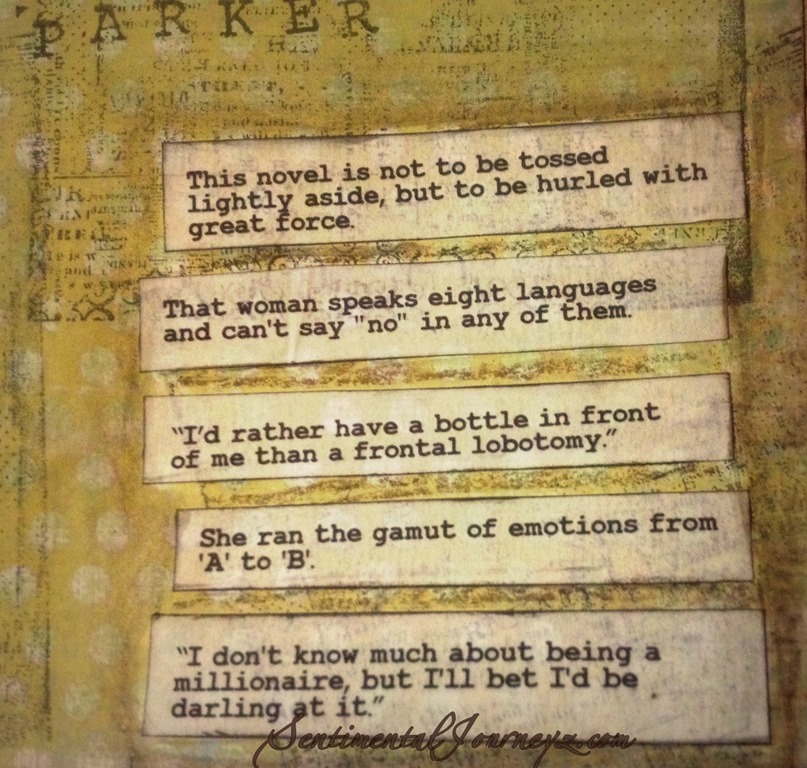 PARKER
This novel is not to be tossed
lightly aside, but to be hurled with
great force.
That woman speaks eight languages
and can't say "no" in any of them.
“I’d rather have a bottle in front
of me than a frontal lobotomy.”
She ran the gamut of emotions from
'A' to 'B'.
“I don't know much about being a
millionaire, but I'll bet I'd be
darling at it.”
SentimentalJourneyz.com